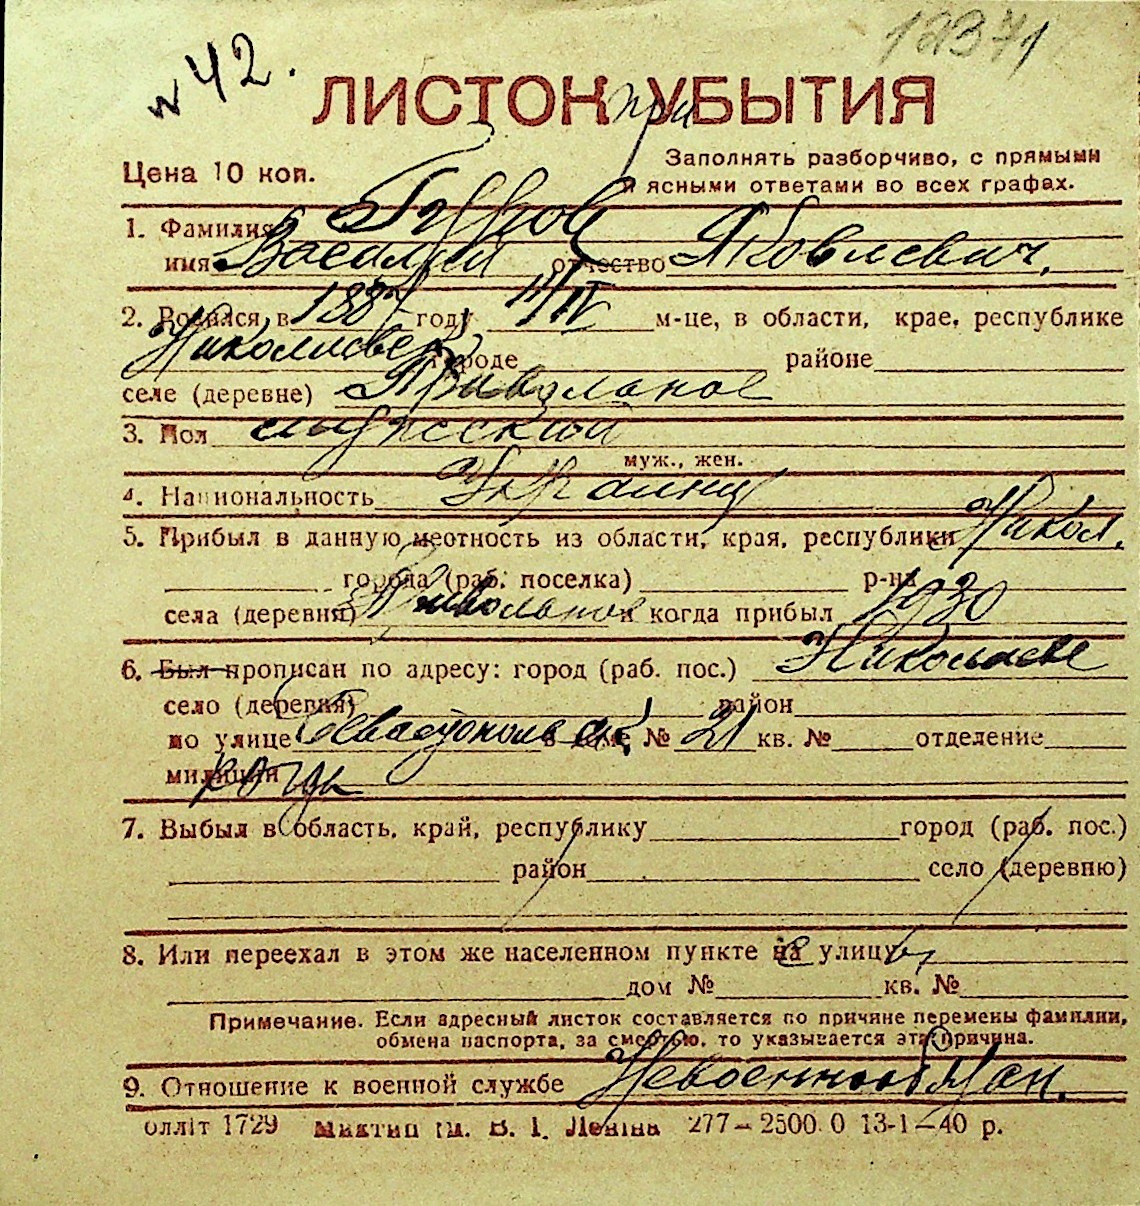 12371
№ 42.
ЛИСТОК при УБЫТИЯ
Цена 10 коп.
Заполнять разборчиво, с прямыми
и ясными ответами во всех графах.
1. Фамилия
имя Василий отчество Яковлевич.
2. Родился в 1887 году 11/IV м-це, в области, крае, республике
Николаевск городе районе
селе (деревне) Привольное
3. Пол мужской
муж., жен.
4. Национальность Украинец
5. Прибыл в данную местность из области, края, республики Никол.
города (раб. поселка) р-на
села (деревни) Привольное и когда прибыл 1930
6. Был прописан по адресу: город (раб. пос.) Николаеве
село (деревня) район
по улице Севастопольск. в доме № 21 кв. № отделение
милиции
7. Выбыл в область, край, республику город (раб. пос.)
район село (деревню)
8. Или переехал в этом же населенном пункте на улицу
дом № кв. №
Примечание. Если адресный листок составляется по причине перемены фамилии,
обмена паспорта, за смертью, то указывается эта причина.
9. Отношение к военной службе Невоеннообязан.
оллiт 1729 Миктип iм. В. I. Ленiна 277–2500.0 13-1–40 р.